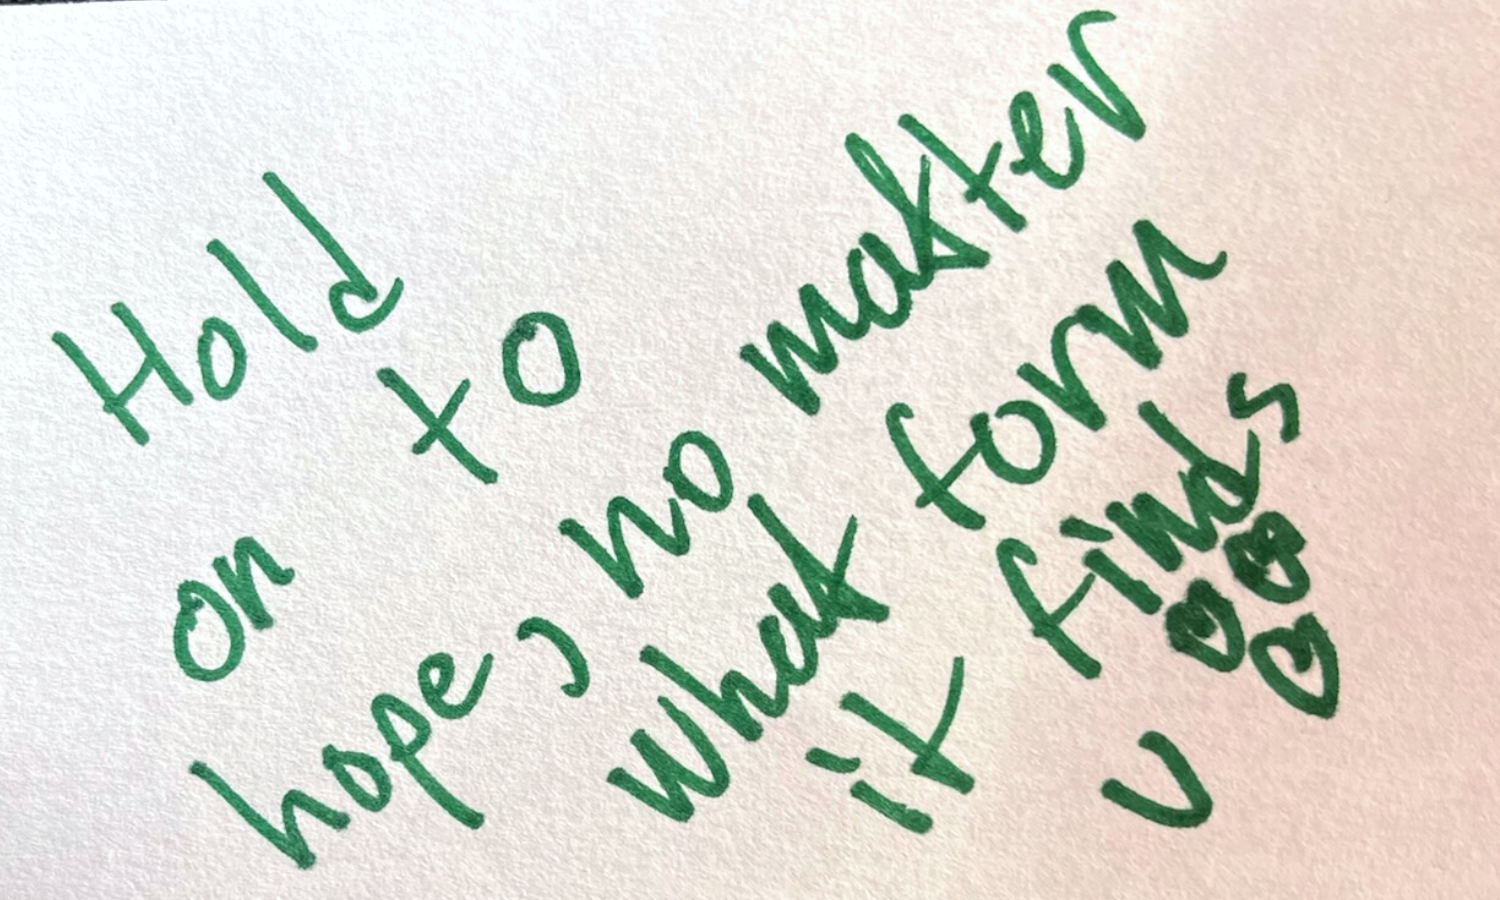 Hold
on to
hope, no matter
what form
it finds
u